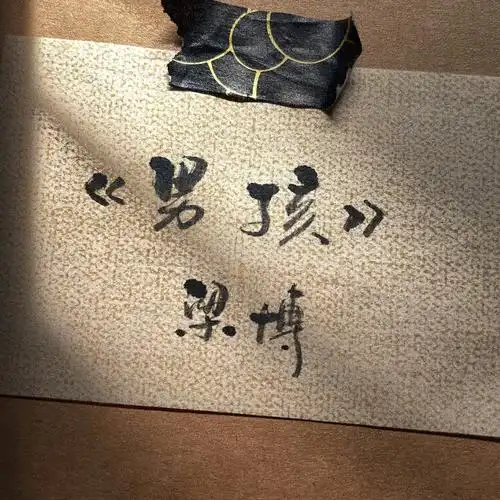 《男孩》
梁博